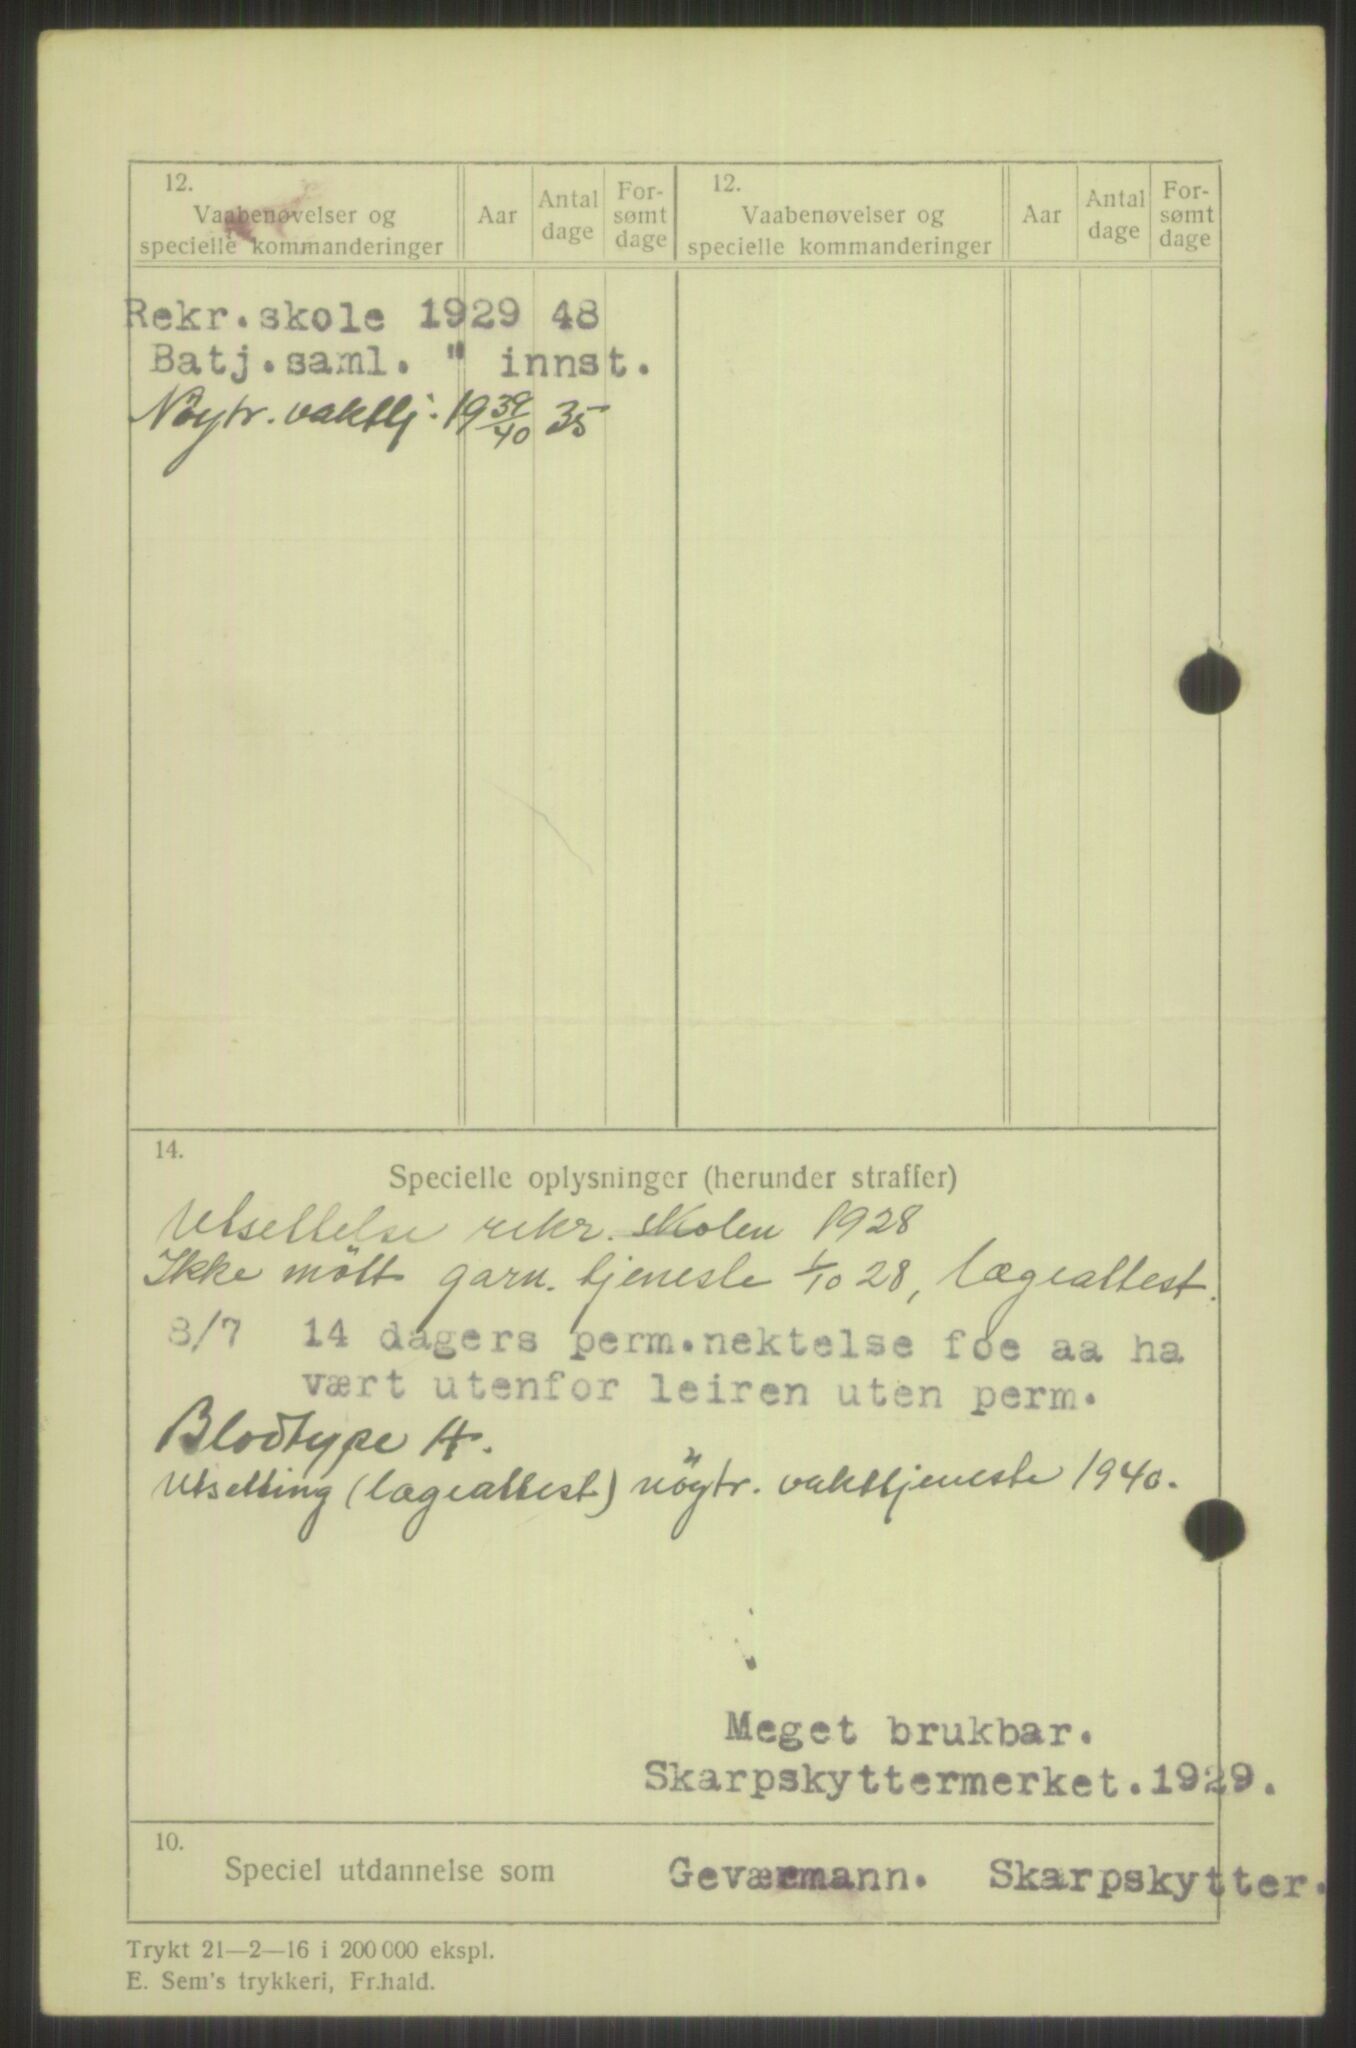 12.
Vaabenøvelser og
specielle kommanderinger
Aar
Antal
dage
For-
sømt
dage
12.
Vaabenøvelser og
specielle kommanderinger
Aar
Antal
dage
For-
sømt
dage
Rekr.skole 1929 48
Batj.saml. " innst.
Nöytr. vakttj. 19 39/40 35
14.
Specielle oplysninger (herunder straffer)
Utsettelse rekr. skolen 1928
Ikke mött garn. tjeneste 1/10 28, lægeattest.
8/7 14 dagers perm.nektelse foe aa ha
vært utenfor leiren uten perm.
Blodtype A.
Utsetting (lægeattest) nöytr. vakttjeneste 1940.
Meget brukbar.
Skarpskyttermerket.1929.
10.
Speciel utdannelse som
Geværmann. Skarpskytter.
Trykt 21—2—16 i 200 000 ekspl.
E. Sem's trykkeri, Fr.hald.